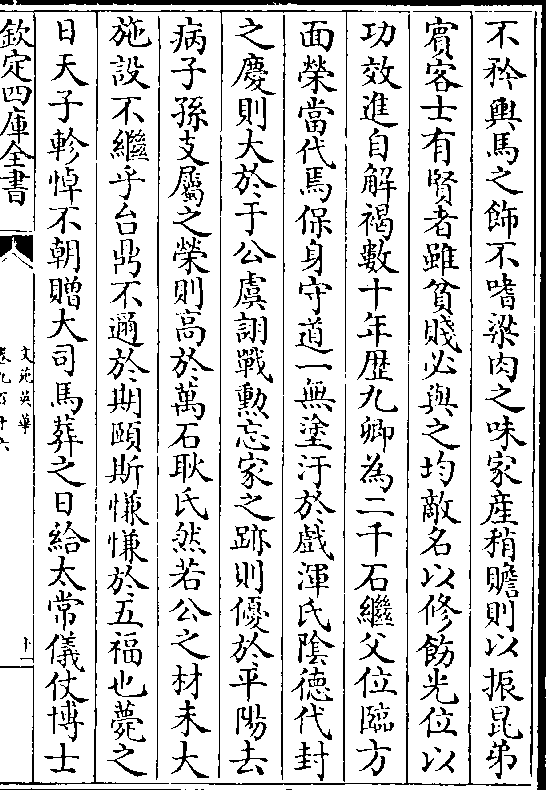 不矜輿馬之飾不嗜梁肉之味家産稍贍則以振昆弟
賓客士有賢者雖貧賤必與之均敵名以修飭光位以
功效進自解褐數十年歴九卿為二千石繼父位臨方
面榮當代焉保身守道一無塗汙於戲渾氏隂德代封
之慶則大於于公虞詡戰勲忘家之跡則優於平陽去
病子孫支屬之榮則高於萬石耿氏然若公之材未大
施設不繼乎台鼎不逦於期頤斯慊慊於五福也薨之
日天子軫悼不朝贈大司馬葬之日給太常儀仗博士
欽定四庫全書
文苑英華
卷九百廿六
十一